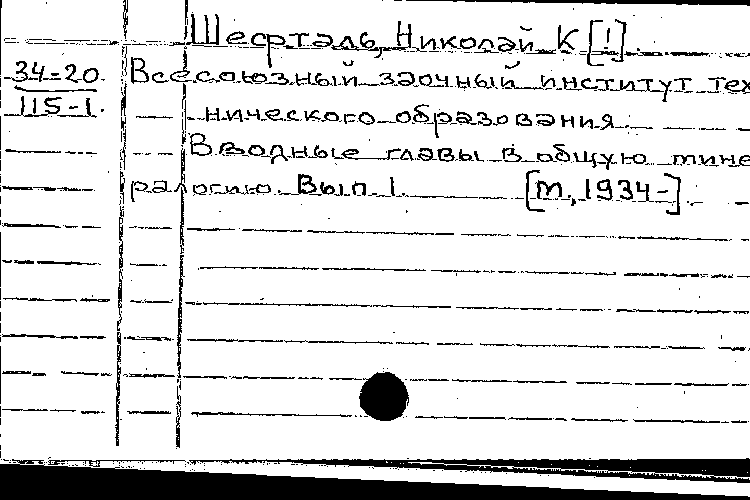 Шефталь, Николай К [!].
34-20
115-1.
Всесоюзный заочный институт тех
нического образования.
Вводные главы в общую мине
ралогию. Вып 1. [М., 1934-].